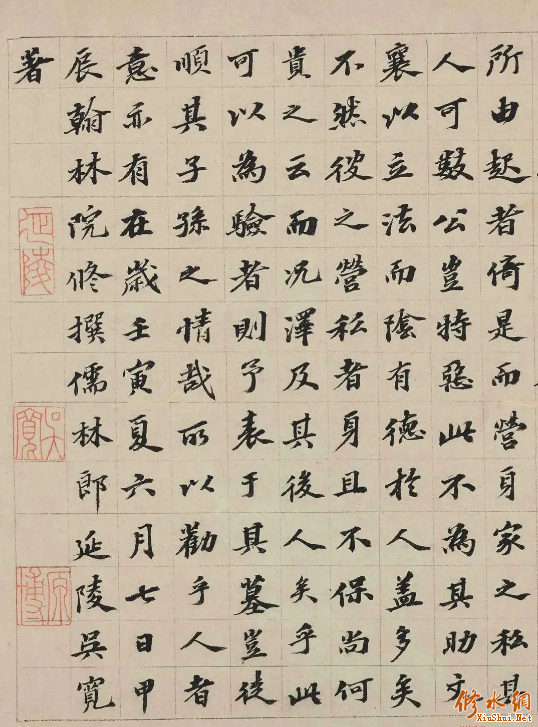 所由起者倚是而營身家之私其
人可數公豈特惡此不為其助文
襄以立法而陰有德於人蓋多矣
不然彼之營私者身且不保尚何
貴之云而況澤及其後人矣乎此
可以為驗者則予表于其墓豈徒
順其子孫之情哉所以勸乎人者
意亦有在歲壬寅夏六月七日甲
辰翰林院修撰儒林郎延陵吳寬
著
延陵
吳寬
原博
修水網
XiuShui.Net